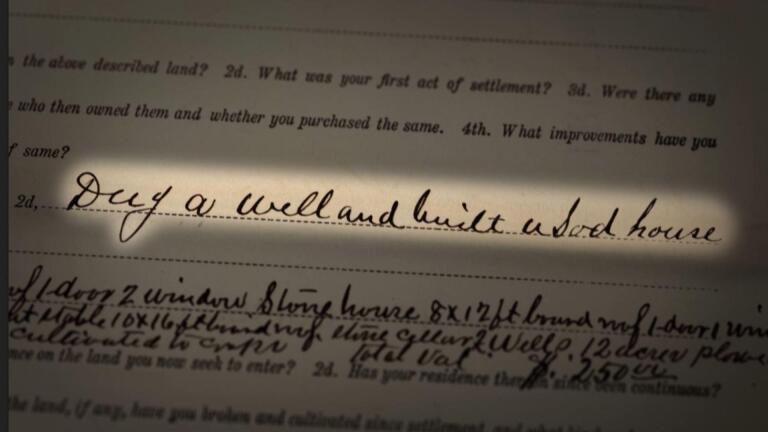 n the above described land? 2d. What was your first act of settlement? 3d. Were there any
who then owned them and whether you purchased the same. 4th. What improvements have you
f same?
2d, Dug a well and built a Sod house
1 door 2 window Stone house 8x12 ft board roof 1 door 1 win
stable 10x16 ft board roof. stone cellar 2 Wells. 12 acres plow
cultivated to crops Total Val. $ 250 00
nce on the land you now seek to enter? 2d. Has your residence thereon since been continuous?
the land, if any, have you broken and cultivated since settlement, and what kind